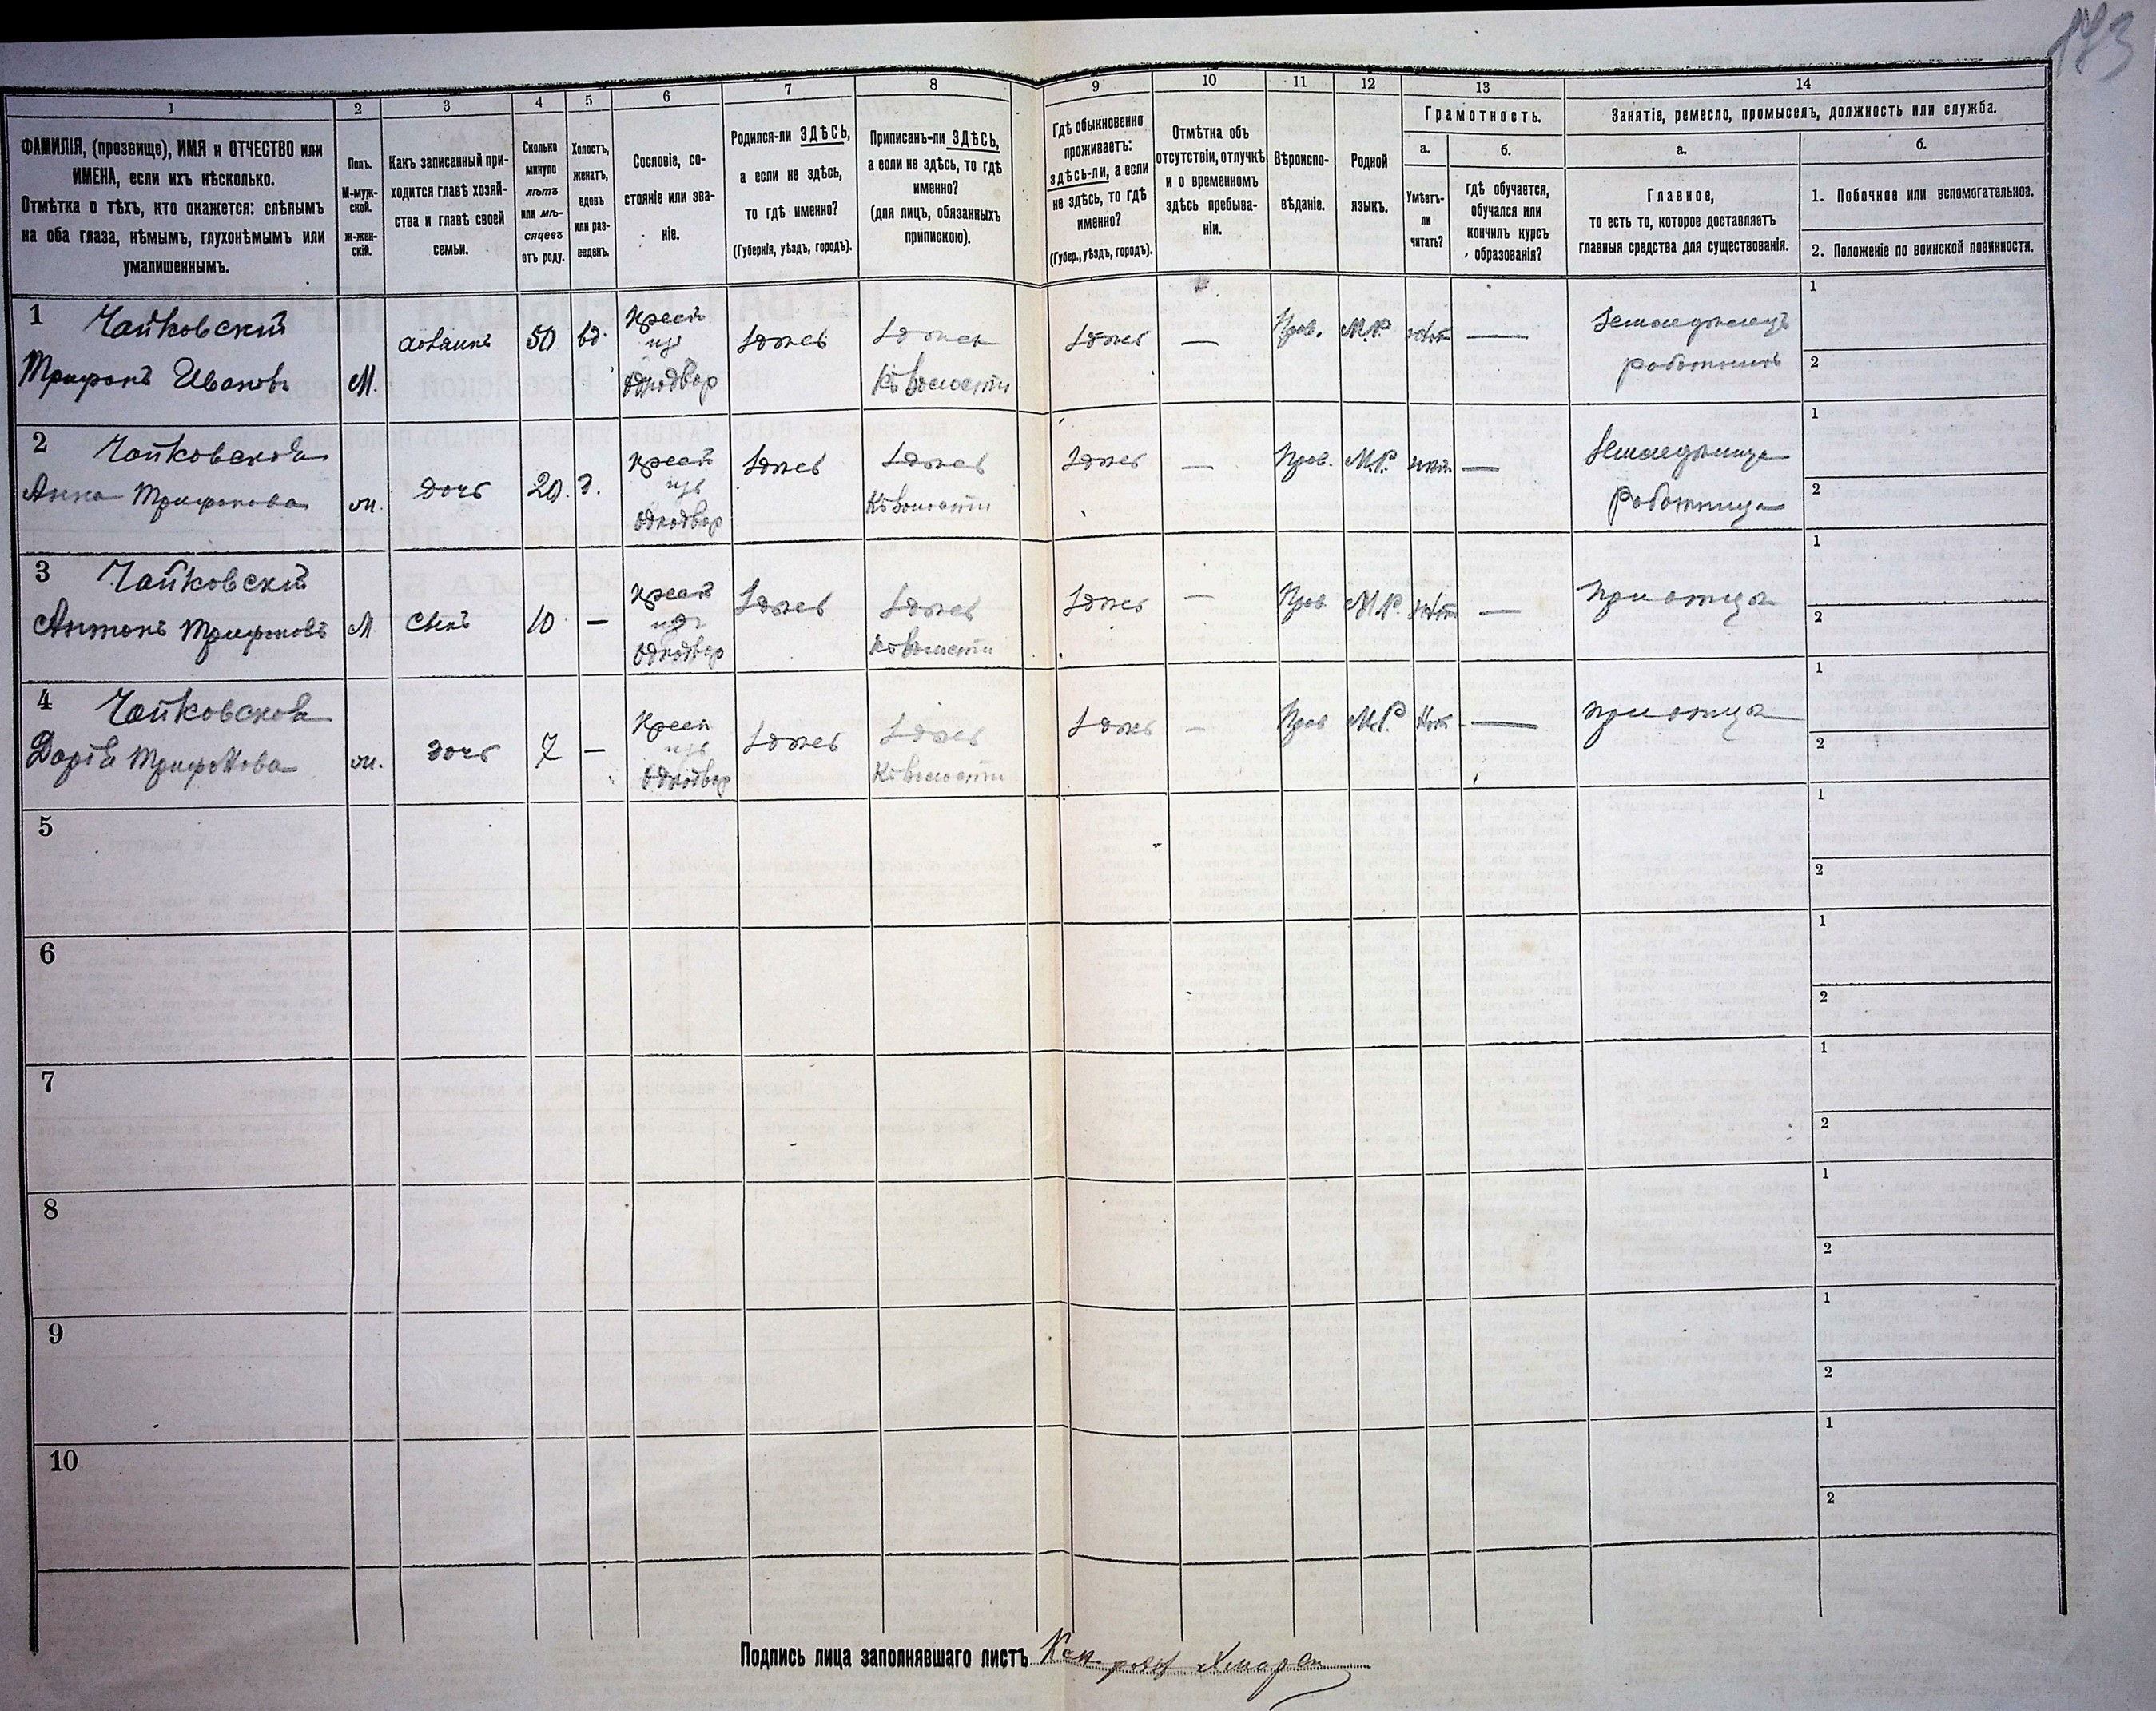 173
1
2
3
4
5
6
7
8
9
10
11
12
13
14
ФАМИЛІЯ, (прозвище), ИМЯ и ОТЧЕСТВО или
ИМЕНА, если ихъ нѣсколько.
Отмѣтка о тѣхъ, кто окажется: слѣпымъ
на оба глаза, нѣмымъ, глухонѣмымъ или
умалишеннымъ.
Полъ.
М-муж-
ской.
ж-жен-
скій.
Какъ записанный при-
ходится главѣ хозяй-
ства и главѣ своей
семьи.
Сколько
минуло
лѣтъ
или мѣ-
сяцевъ
отъ роду.
Холостъ,
женатъ,
вдовъ
или раз-
веденъ.
Сословіе, со-
стояніе или зва-
ніе.
Родился-ли ЗДѢСЬ,
а если не здѣсь,
то гдѣ именно?
(Губернія, уѣздъ, городъ).
Приписанъ-ли ЗДѢСЬ,
а если не здѣсь, то гдѣ
именно?
(для лицъ, обязанныхъ
припискою).
Гдѣ обыкновенно
проживаетъ:
здѣсь-ли, а если
не здѣсь, то гдѣ
именно?
(Губер., уѣздъ, городъ).
Отмѣтка объ
отсутствіи, отлучкѣ
и о временномъ
здѣсь пребыва-
ніи.
Вѣроиспо-
вѣданіе.
Родной
языкъ.
Грамотность.
а.
Умѣетъ-
ли
читать?
б.
гдѣ обучается,
обучался или
кончилъ курсъ
образованія?
Занятіе, ремесло, промыселъ, должность или служба.
а.
Главное,
то есть то, которое доставляетъ
главныя средства для существованія.
б.
1. Побочное или вспомогательное.
2. Положеніе по воинской повинности.
1 Чайковскій
Трифонъ Ивановъ
М.
хозяинъ
50
вд.
Крест
изъ
однодвор
здѣсь
здѣсь
къ волости
здѣсь
—
Прав.
М.Р.
нѣтъ
—
Земледѣлецъ
работникъ
1
2
2 Чайковская
Анна Трифонова
ж.
дочь
20.
д.
Крест
изъ
однодвор
здѣсь
здѣсь
къ волости
здѣсь
—
Прав.
М.Р.
нѣтъ
—
Земледѣлица
работница
1
2
3 Чайковскій
Антонъ Трифоновъ
М.
сынъ
10
—
Крест
изъ
однодвор
здѣсь
здѣсь
къ волости
здѣсь
—
Прав
М.Р.
нѣтъ
—
при отцѣ
1
2
4 Чайковская
Дарія Трифонова
ж.
дочь
7
—
Крест
изъ
однодвор
здѣсь
здѣсь
къ волости
здѣсь
—
Прав
М.Р.
нѣтъ
—
при отцѣ
1
2
5
1
2
6
1
2
7
1
2
8
1
2
9
1
2
10
1
2
Подпись лица заполнявшаго листъ